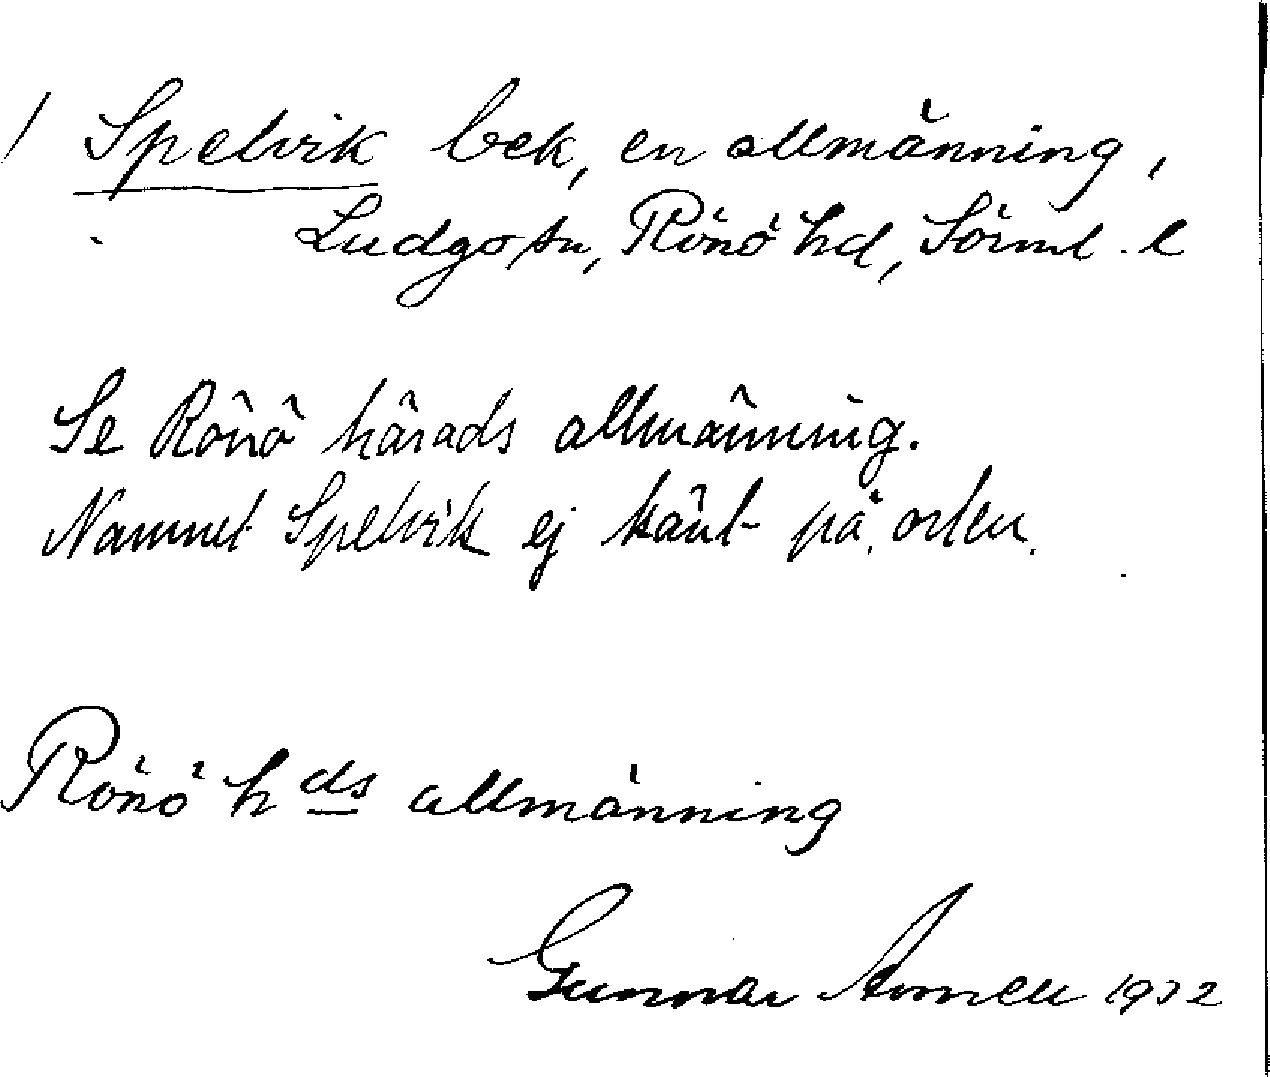 / Spelvik bek, en allmänning,
Ludgo sn, Rönö hd, Sörml. l
Se Rönö härads allmänning.
Namnet Spelvik ej känt på orten.
Rönö hds allmänning
Gunnar